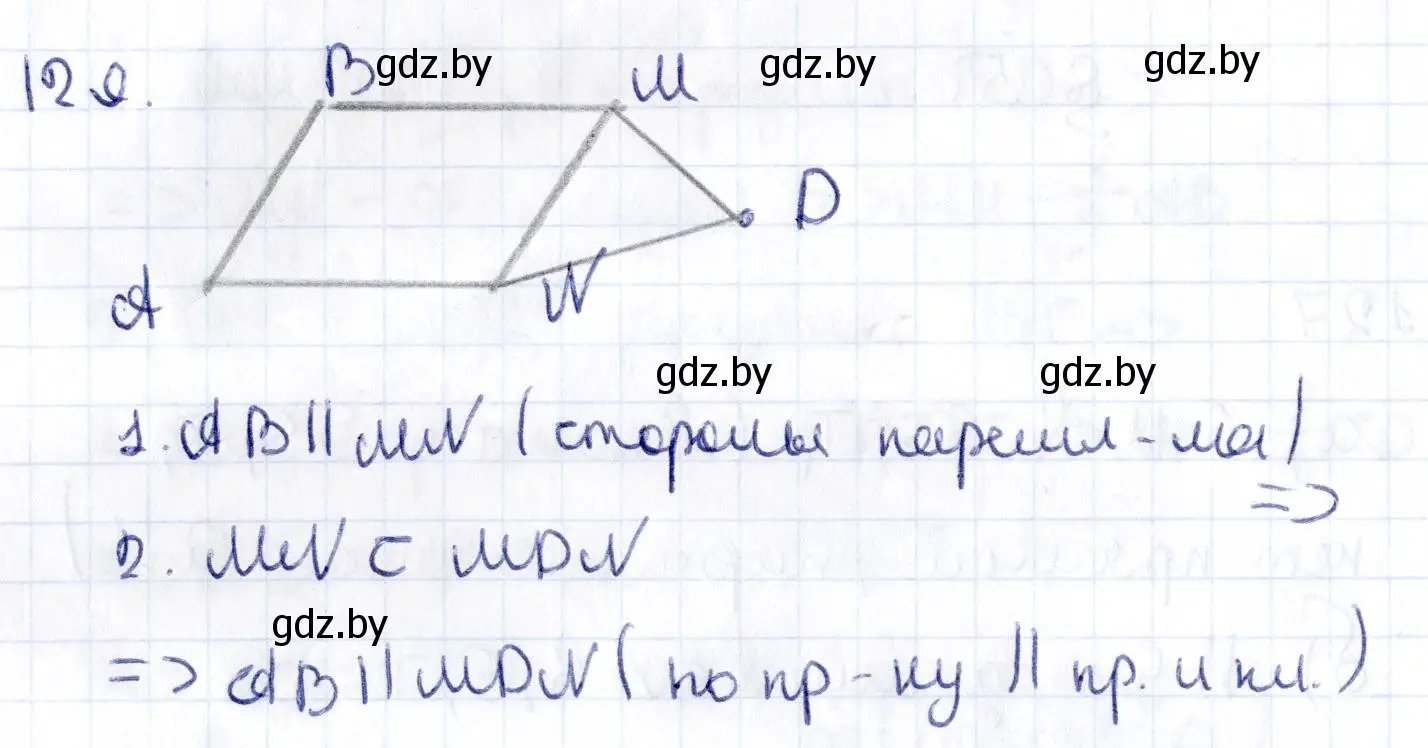 129. B gdz.by gdz.by M gdz.by
D
A N
gdz.by gdz.by
1. AB || MN (стороны паралл-ма) =>
2. MN ⊂ MDN
gdz.by
=> AB || MDN (по пр-ку || пр. и пл.)